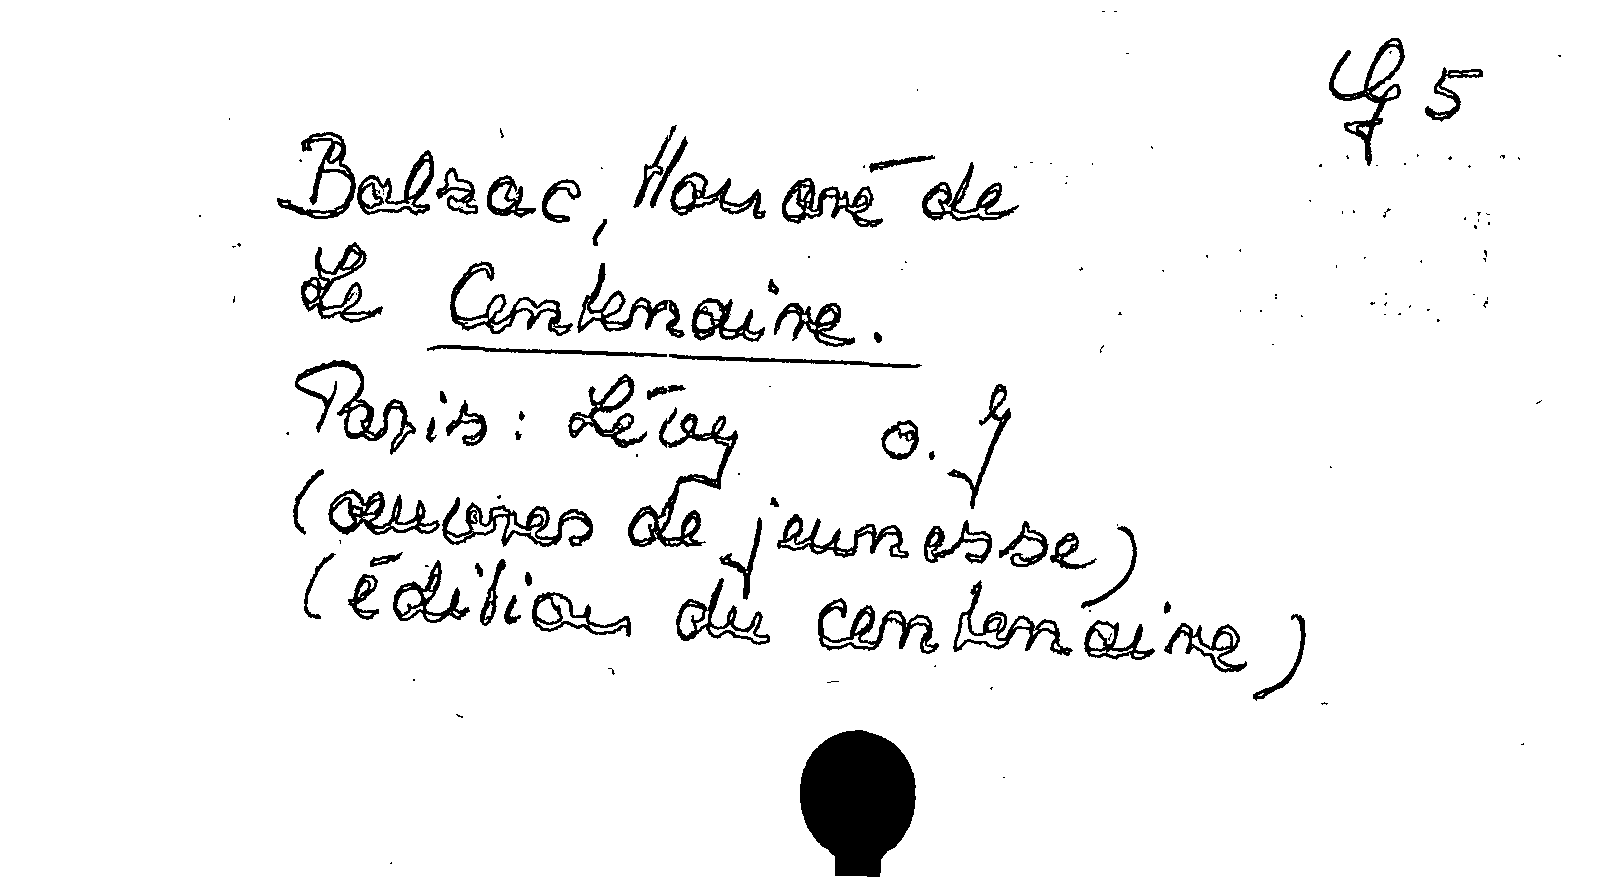 G 5
Balzac, Honoré de
Le Centenaire.
Paris: Lévy o. J
(œuvres de jeunesse)
(édition du centenaire)